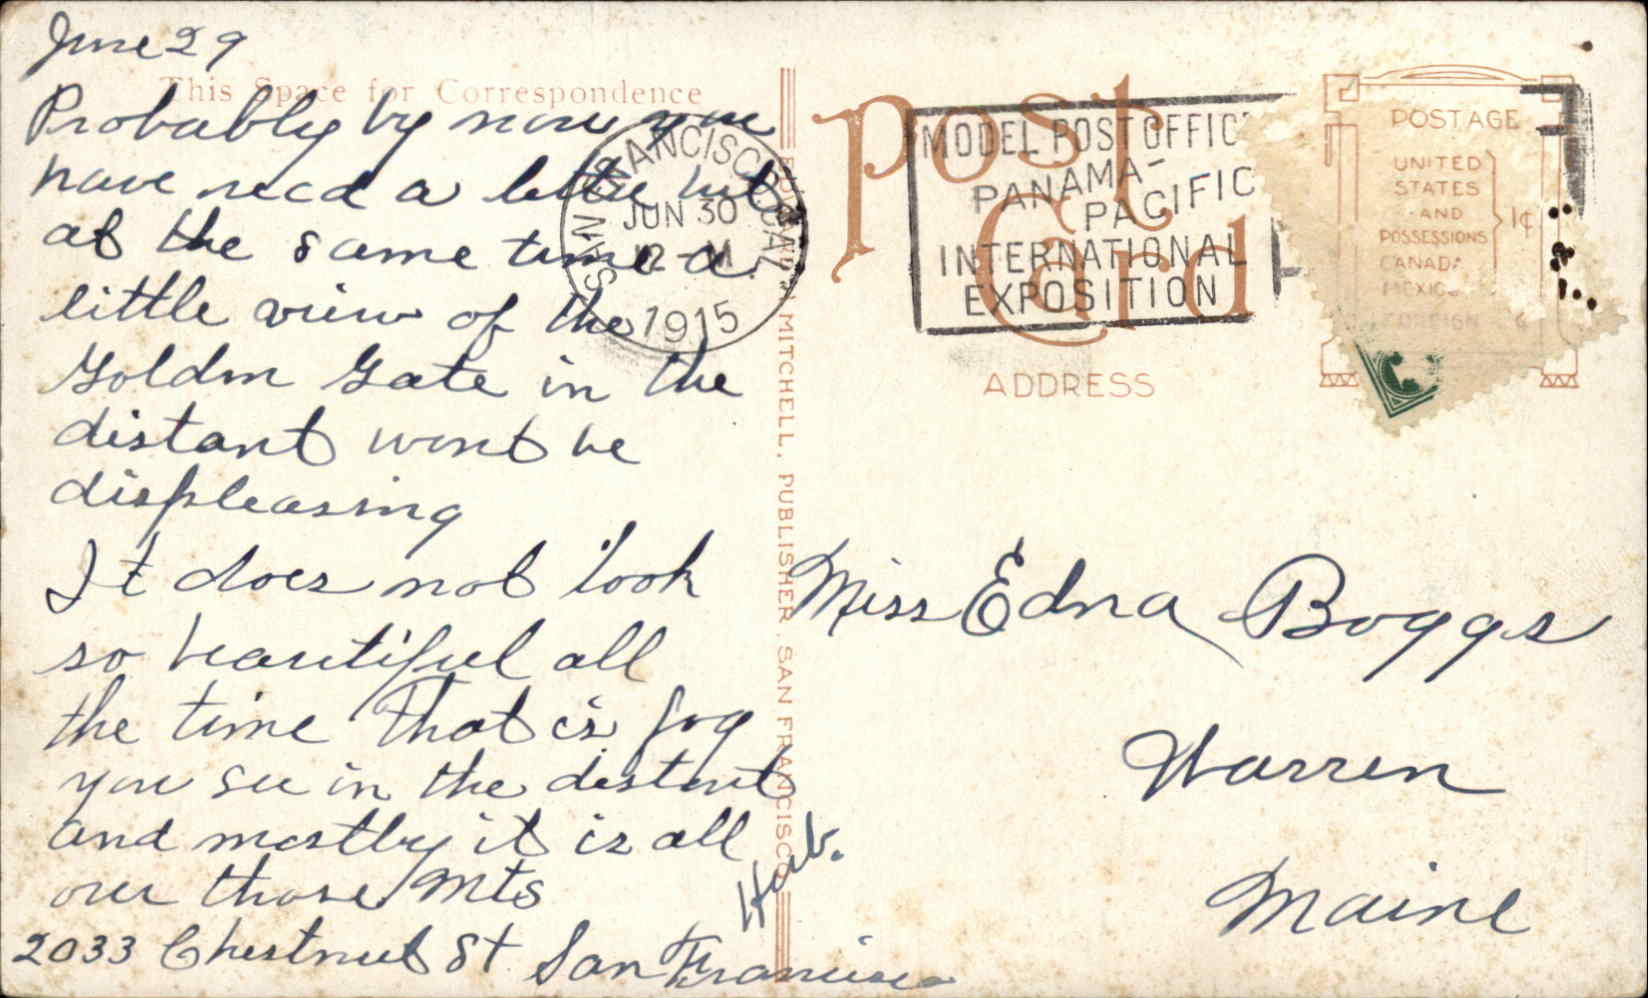 June 29
This Space for Correspondence
Probably by now you
have recd a letter but
at the same time a
little view of the
Golden Gate in the
distant wont be
displeasing
It does not look
so beautiful all
the time that is fog
you see in the distant
and mostly it is all
over those Mts
2033 Chestnut St San Francisco
SAN FRANCISCO, CAL.
JUN 30
12-M
1915
MITCHELL, PUBLISHER, SAN FRANCISCO
Post Card
MODEL POST OFFICE
PANAMA-
PACIFIC
INTERNATIONAL
EXPOSITION
ADDRESS
POSTAGE
UNITED
STATES
AND
POSSESSIONS
CANADA
MEXICO
1¢
FOREIGN
¢
Miss Edna Boggs
Warren
Maine